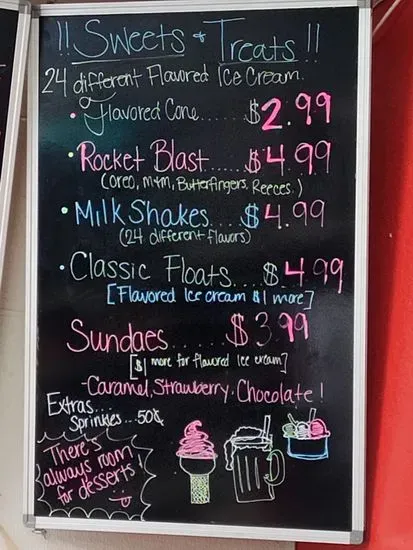 !! Sweets & Treats !!
24 different Flavored Ice Cream.
• Flavored Cone...... $2.99
• Rocket Blast..... $4.99
(oreo, m+m, Butterfingers, Reeces.)
• Milk Shakes... $4.99
(24 different flavors)
• Classic Floats... $4.99
[Flavored Ice cream $1 more]
Sundaes...... $3.99
[$1 more for flavored Ice cream]
-Caramel, Strawberry, Chocolate!
Extras...
Sprinkles...50¢
There's
always room
for desserts